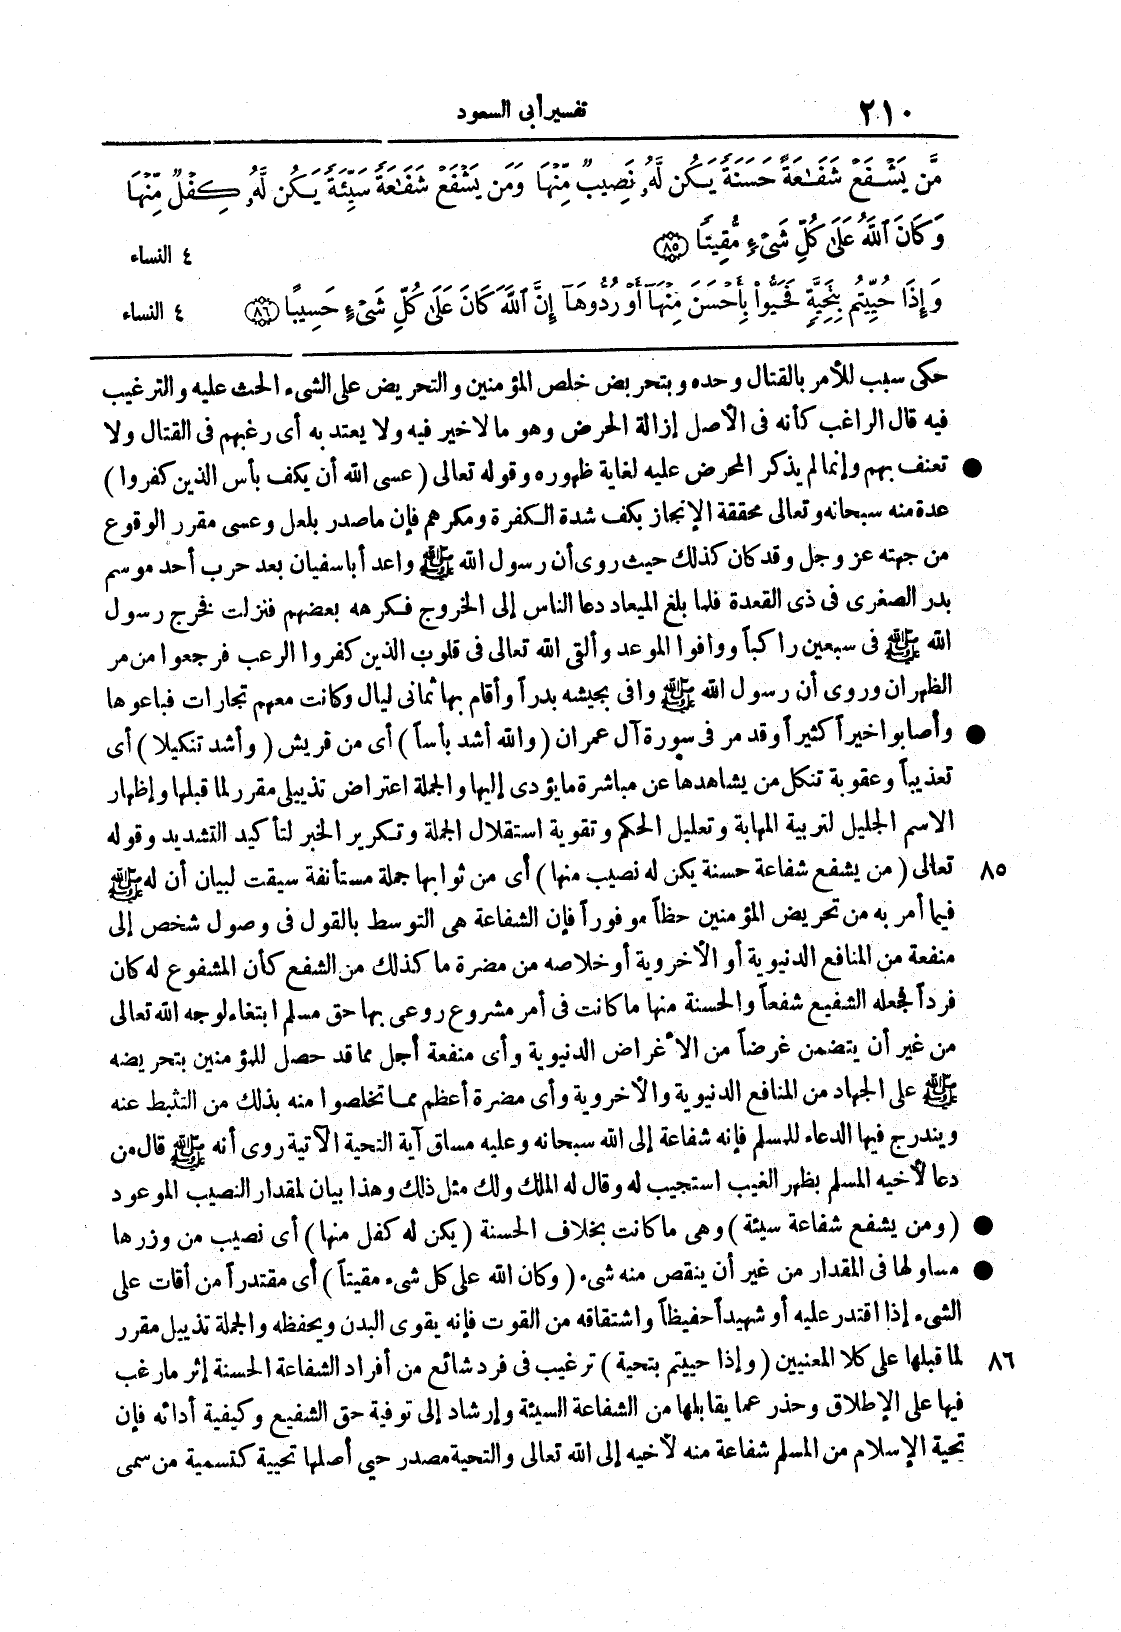 ٢١٠ تفسير أبى السعود
مَّن يَشْفَعْ شَفَٰعَةً حَسَنَةً يَكُن لَّهُۥ نَصِيبٌ مِّنْهَا وَمَن يَشْفَعْ شَفَٰعَةً سَيِّئَةً يَكُن لَّهُۥ كِفْلٌ مِّنْهَا
وَكَانَ ٱللَّهُ عَلَىٰ كُلِّ شَىْءٍ مُّقِيتًا ﴿٨٥﴾ ٤ النساء
وَإِذَا حُيِّيتُم بِتَحِيَّةٍ فَحَيُّوا۟ بِأَحْسَنَ مِنْهَآ أَوْ رُدُّوهَآ إِنَّ ٱللَّهَ كَانَ عَلَىٰ كُلِّ شَىْءٍ حَسِيبًا ﴿٨٦﴾ ٤ النساء
حكى سبب للأمر بالقتال وحده وبتحريض خلص المؤمنين والتحريض على الشىء الحث عليه والترغيب
فيه قال الراغب كأنه فى الأصل إزالة الحرض وهو ما لا خير فيه ولا يعتد به أى رغبهم فى القتال ولا
● تعنف بهم وإنما لم يذكر المحرض عليه لغاية ظهوره وقوله تعالى (عسى الله أن يكف بأس الذين كفروا)
عدة منه سبحانه وتعالى محققة الإنجاز بكف شدة الكفرة ومكرهم فإن ما صدر بلعل وعسى مقرر الوقوع
من جهته عز وجل وقد كان كذلك حيث روى أن رسول الله ﷺ واعد أبا سفيان بعد حرب أحد موسم
بدر الصغرى فى ذى القعدة فلما بلغ الميعاد دعا الناس إلى الخروج فكرهه بعضهم فنزلت فخرج رسول
الله ﷺ فى سبعين راكباً ووافوا الموعد وألقى الله تعالى فى قلوب الذين كفروا الرعب فرجعوا من مر
الظهران وروى أن رسول الله ﷺ وافى بجيشه بدراً وأقام بها ثمانى ليال وكانت معهم تجارات فباعوها
● وأصابوا خيراً كثيراً وقد مر فى سورة آل عمران (والله أشد بأساً) أى من قريش (وأشد تنكيلا) أى
تعذيباً وعقوبة تنكل من يشاهدها عن مباشرة ما يؤدى إليها والجملة اعتراض تذييلى مقرر لما قبلها وإظهار
الاسم الجليل لتربية المهابة وتعليل الحكم وتقوية استقلال الجملة وتكرير الخبر لتأكيد التشديد وقوله
٨٥ تعالى (من يشفع شفاعة حسنة يكن له نصيب منها) أى من ثوابها جملة مستأنفة سيقت لبيان أن له ﷺ
فيما أمر به من تحريض المؤمنين حظاً موفوراً فإن الشفاعة هى التوسط بالقول فى وصول شخص إلى
منفعة من المنافع الدنيوية أو الأخروية أو خلاصه من مضرة ما كذلك من الشفع كأن المشفوع له كان
فرداً فجعله الشفيع شفعاً والحسنة منها ما كانت فى أمر مشروع روعى بها حق مسلم ابتغاء لوجه الله تعالى
من غير أن يتضمن غرضاً من الأغراض الدنيوية وأى منفعة أجل مما قد حصل للمؤمنين بتحريضه
ﷺ على الجهاد من المنافع الدنيوية والأخروية وأى مضرة أعظم مما تخلصوا منه بذلك من التثبط عنه
ويندرج فيها الدعاء للمسلم فإنه شفاعة إلى الله سبحانه وعليه مساق آية التحية الآتية روى أنه ﷺ قال من
دعا لأخيه المسلم بظهر الغيب استجيب له وقال له الملك ولك مثل ذلك وهذا بيان لمقدار النصيب الموعود
● (ومن يشفع شفاعة سيئة) وهى ما كانت بخلاف الحسنة (يكن له كفل منها) أى نصيب من وزرها
● مساو لها فى المقدار من غير أن ينقص منه شىء (وكان الله على كل شىء مقيتاً) أى مقتدراً من أقات على
الشىء إذا اقتدر عليه أو شهيداً حفيظاً واشتقاقه من القوت فإنه يقوى البدن ويحفظه والجملة تذييل مقرر
٨٦ لما قبلها على كلا المعنيين (وإذا حييتم بتحية) ترغيب فى فرد شائع من أفراد الشفاعة الحسنة إثر ما رغب
فيها على الإطلاق وحذر عما يقابلها من الشفاعة السيئة وإرشاد إلى توفية حق الشفيع وكيفية أدائه فإن
تحية الإسلام من المسلم شفاعة منه لأخيه إلى الله تعالى والتحية مصدر حيى أصلها تحيية كتسمية من سمى